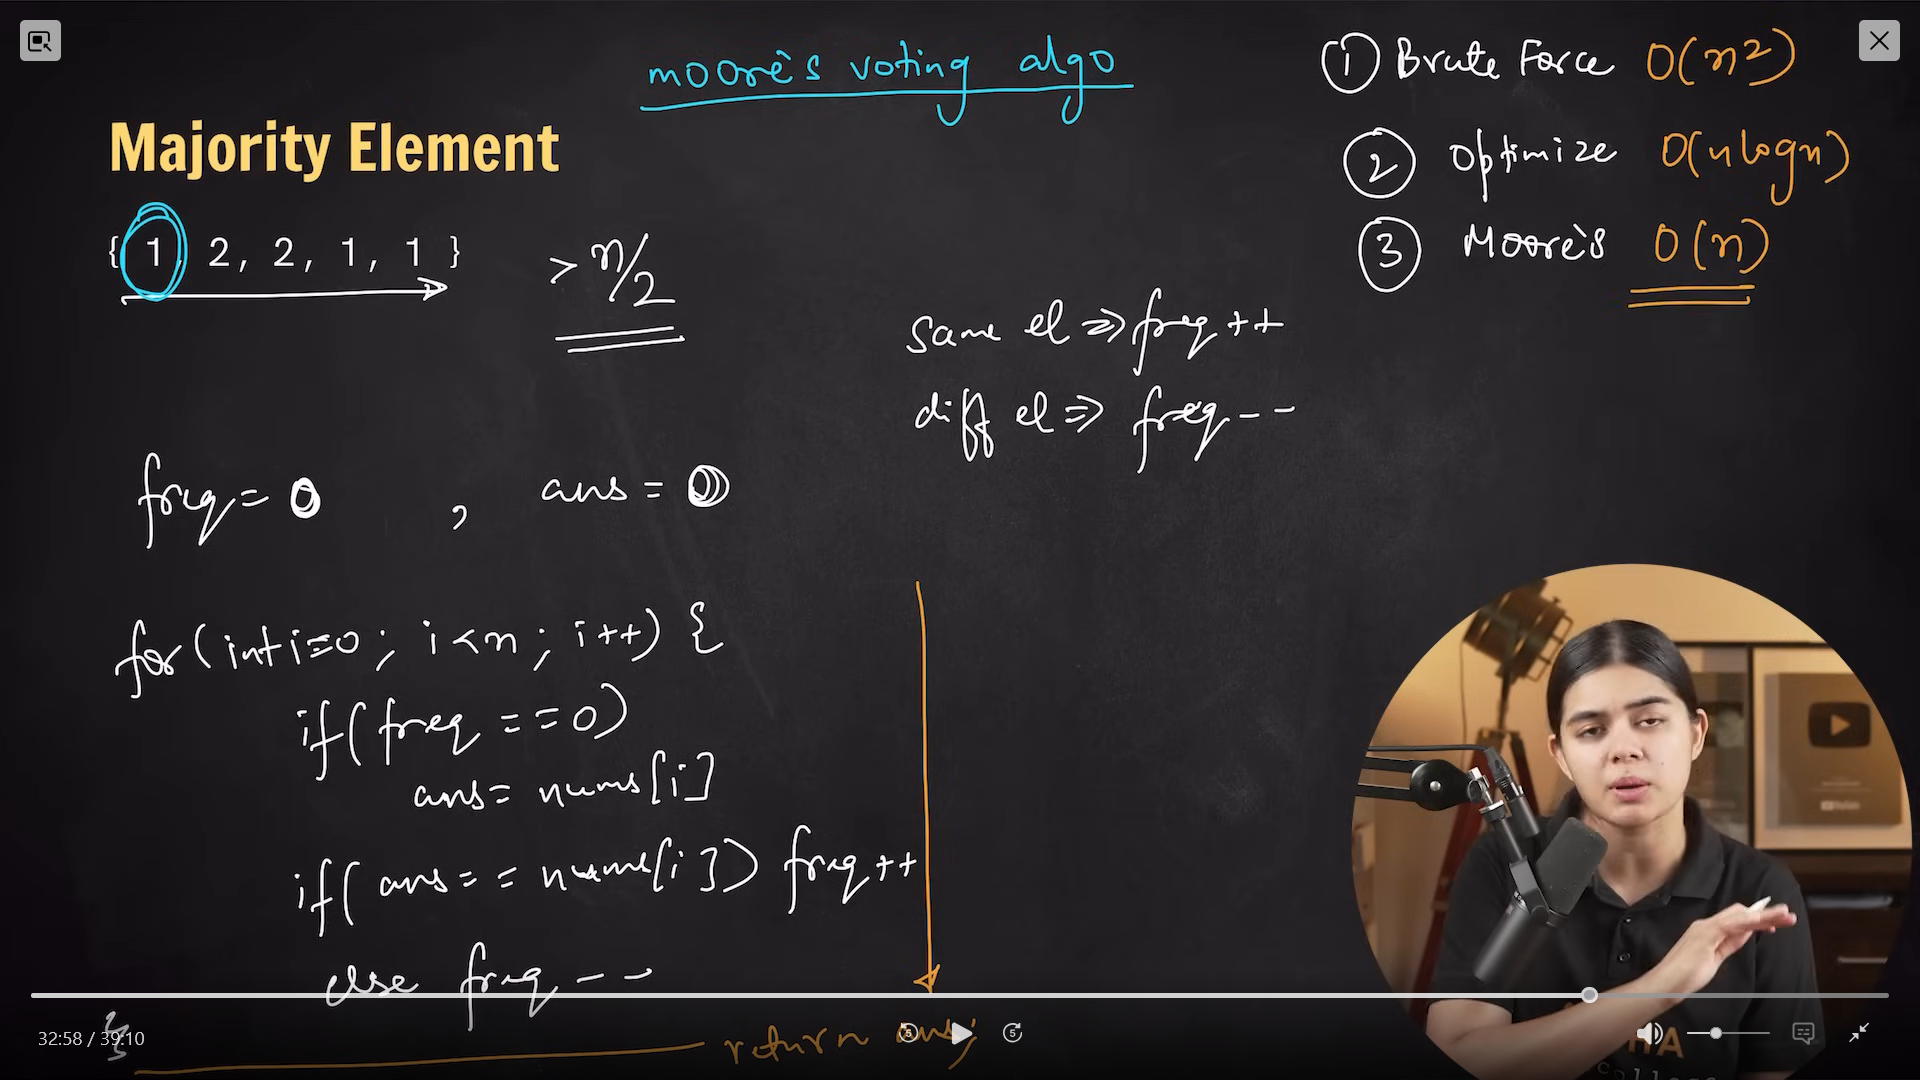 moore's voting algo
① Brute Force O(n²)
② Optimize O(nlogn)
③ Moore's O(n)
Majority Element
{ 1, 2, 2, 1, 1 }
> n/2
same el => freq ++
diff el => freq --
freq = 0 , ans = 0
for (int i=0 ; i<n ; i++) {
if (freq == 0)
ans = nums[i]
if (ans == nums[i]) freq++
else freq --
}
return ans;
32:58 / 39:10